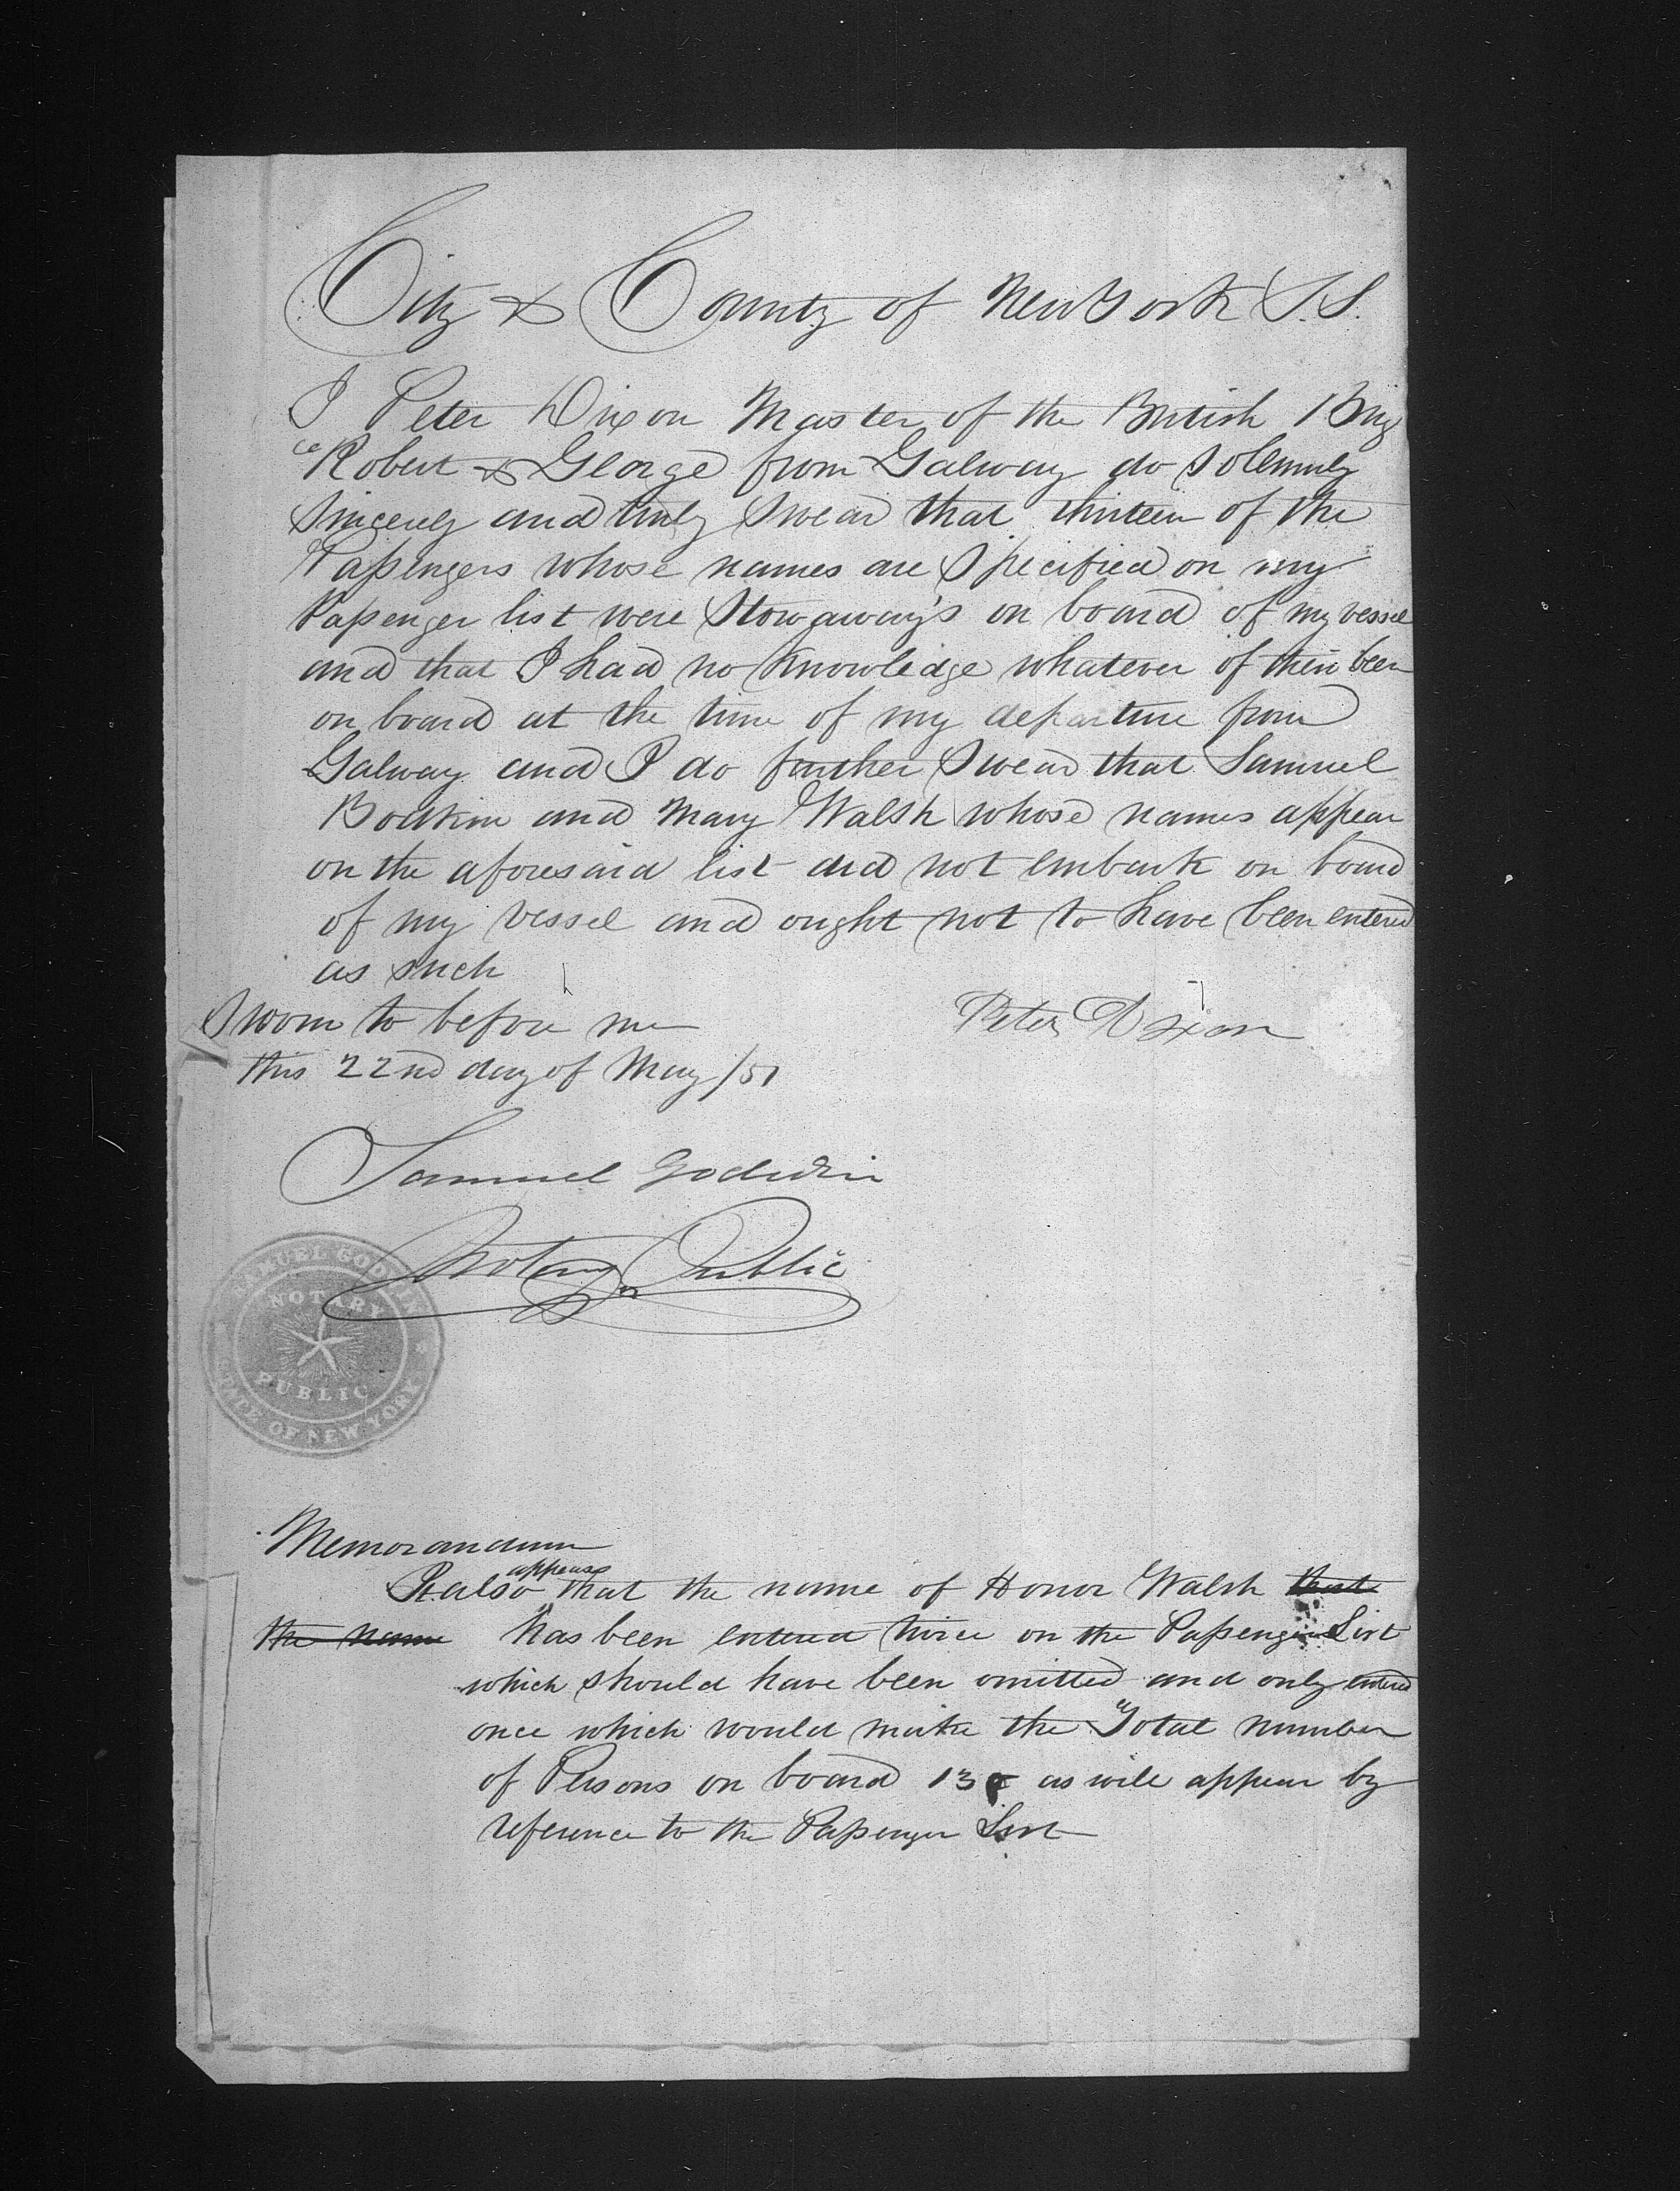 City & County of New York S.S.
I Peter Dixon Master of the British Brig
"Robert & George from Galway do solemnly
Sincerely and truly Swear that thirteen of the
Passengers whose names are Specified on my
Passenger list were Stowaway's on board of my vessel
and that I had no Knowledge whatever of their been
on board at the time of my departure from
Galway and I do further Swear that Samuel
Bodkin and Mary Walsh whose names appear
on the aforesaid list did not embark on board
of my vessel and ought not to have been entered
as such
Sworn to before me Peter Dixon
this 22nd day of May /51
Samuel Godwin
Notary Public
SAMUEL GODWIN
NOTARY
PUBLIC
STATE OF NEW YORK
Memorandum
appears
It also that the name of Honor Walsh that
the name has been entered twice on the Passenger List
which should have been omitted and only entered
once which would make the Total number
of Persons on board as will appear by
reference to the Passenger List